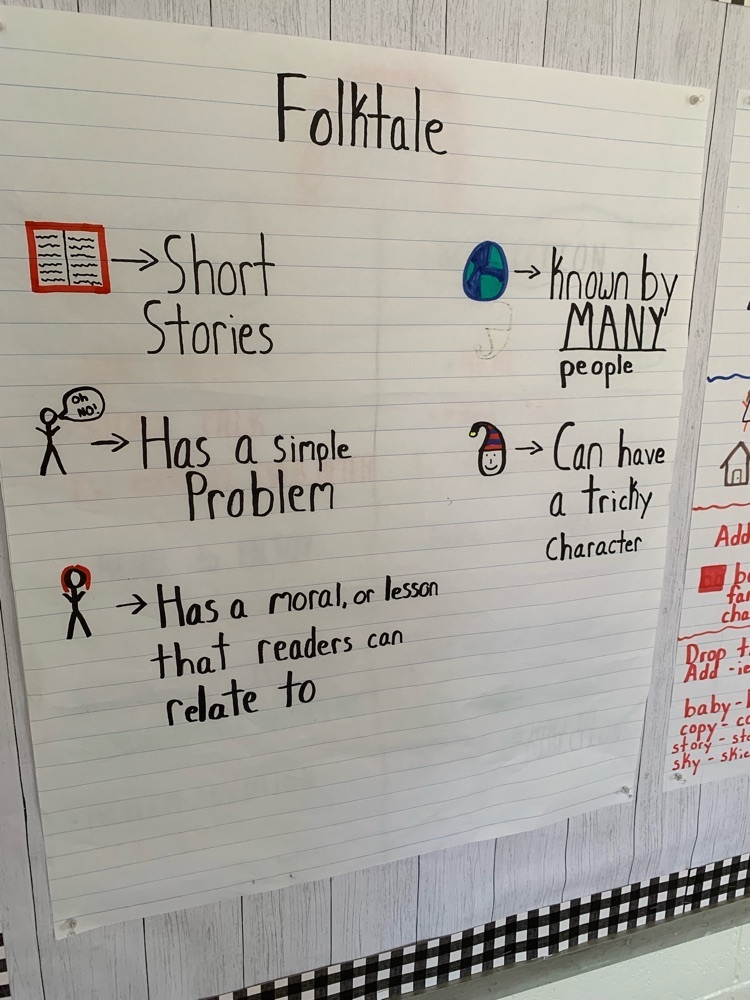 Folktale
Short
Stories
Oh
NO!
Has a simple
Problem
Has a moral, or lesson
that readers can
relate to
Known by
MANY
people
Can have
a tricky
character
Add
Drop
Add -ie
baby -
copy -
story -
sky - skie